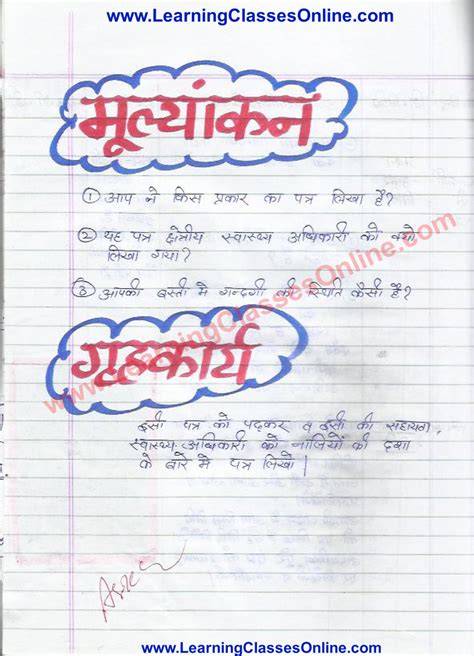 www.LearningClassesOnline.com
मूल्यांकन
① आप ने किस प्रकार का पत्र लिखा है?
② यह पत्र क्षेत्रीय स्वास्थ्य अधिकारी को क्यों
लिखा गया?
③ आपकी बस्ती मे गन्दगी की स्थिति कैसी है?
www.LearningClassesOnline.com
गृहकार्य
इसी पत्र को पढ़कर व इसी की सहायता
स्वास्थ्य अधिकारी को नालियों की दशा
के बारे मे पत्र लिखो|
www.LearningClassesOnline.com